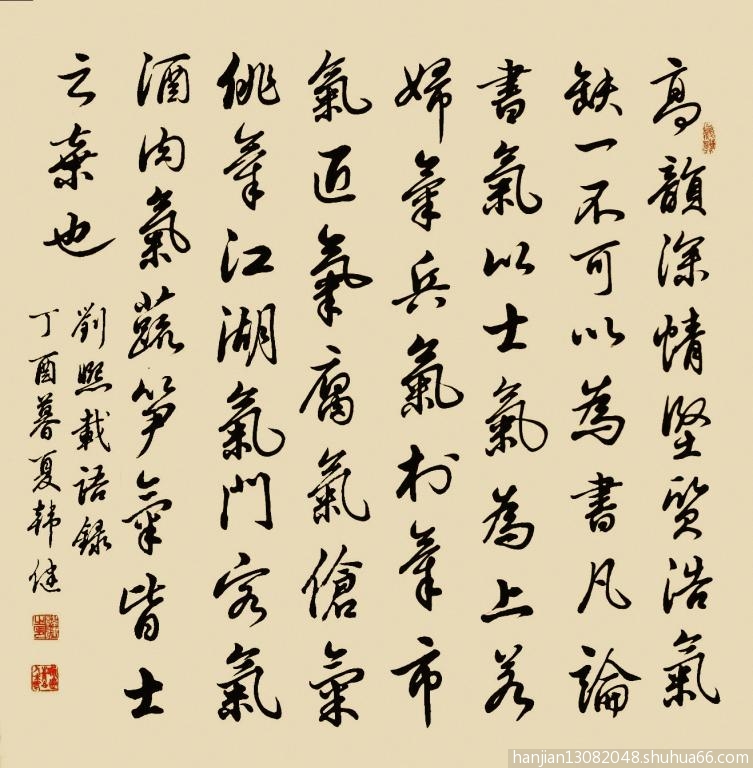 高韻深情堅質浩氣
缺一不可以為書凡論
書氣以士氣為上若
婦氣兵氣村氣市
氣匠氣腐氣傖氣
俳氣江湖氣門客氣
酒肉氣蔬筍氣皆士
之棄也
劉熙載語録
丁酉暮夏韓健
hanjian13082048.shuhua66.com